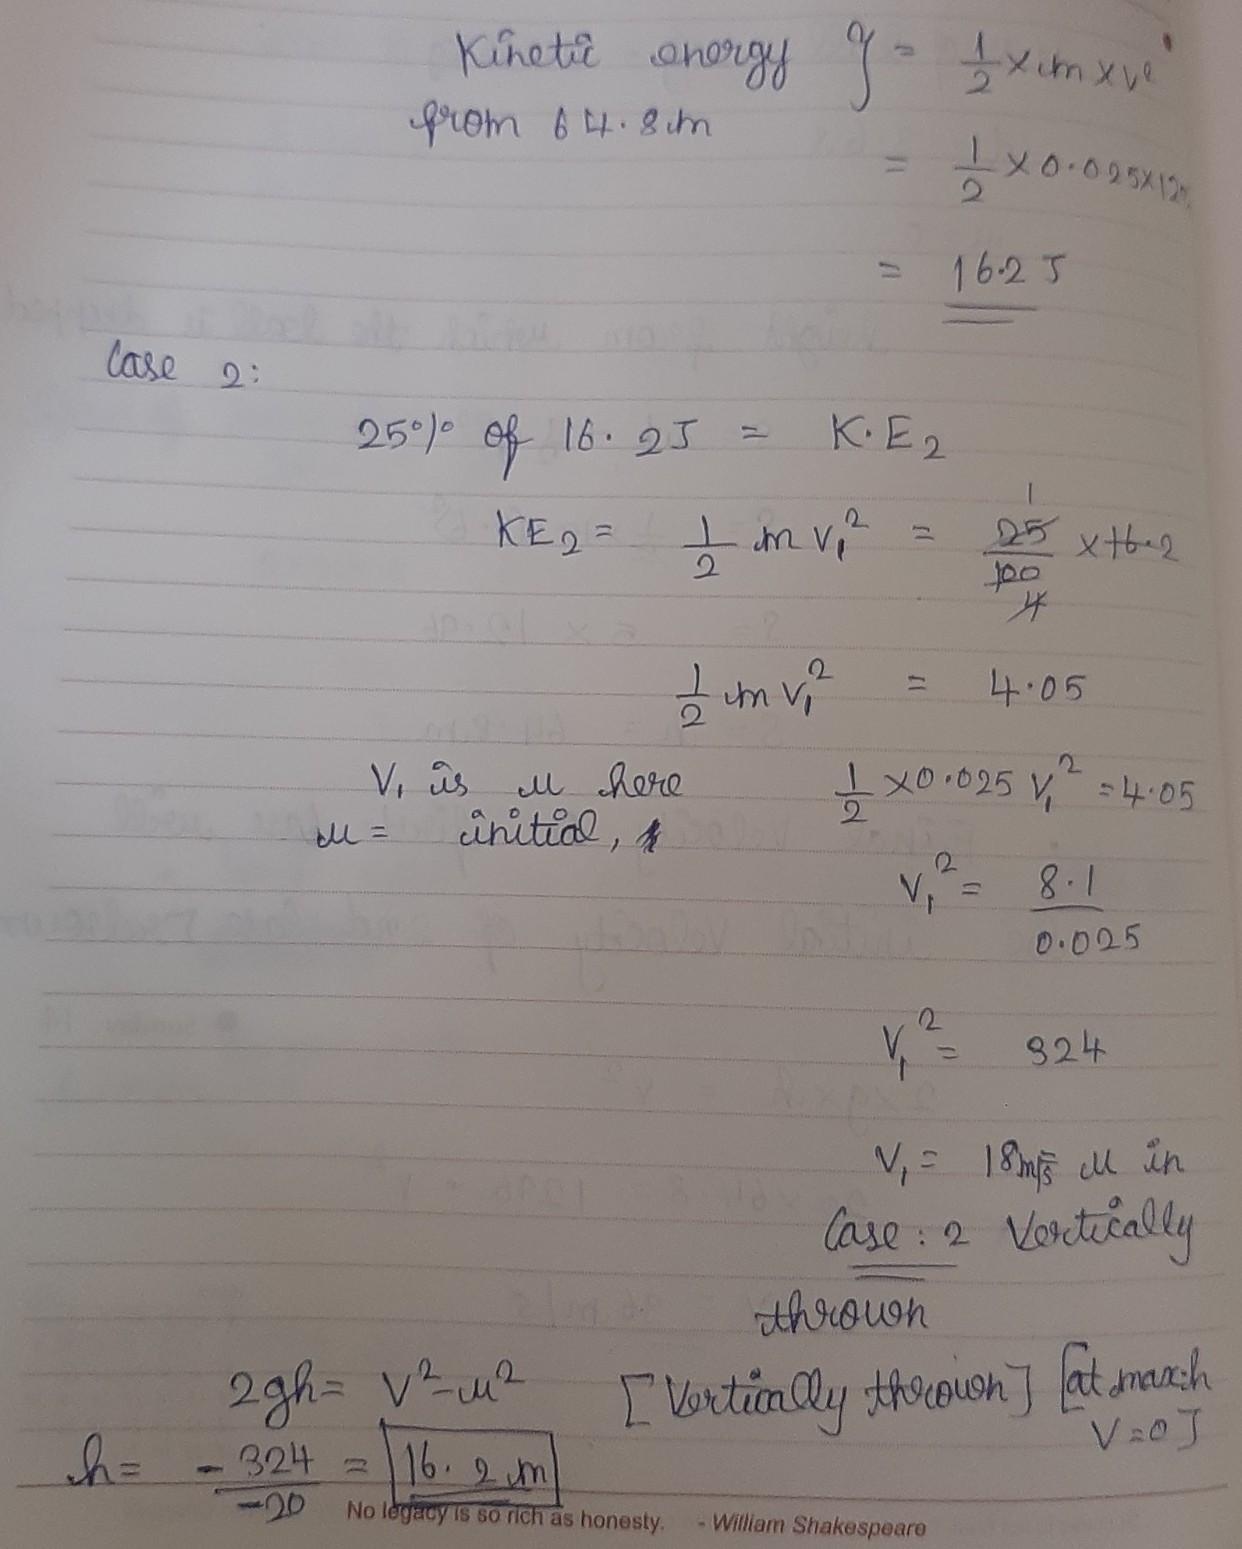 Kinetic energy } = 1/2 × m × v²
from 64.8m
= 1/2 × 0.025 × 12
= 16.2 J
Case 2:
25% of 16.2J = K.E₂
KE₂ = 1/2 m v₁² = 25/100 × 16.2
1
4
1/2 m v₁² = 4.05
V₁ is u here 1/2 × 0.025 V₁² = 4.05
u = initial,
V₁² = 8.1/0.025
V₁² = 324
V₁ = 18m/s u in
Case: 2 Vertically
thrown
2gh = V² - u² [Vertically thrown] [at max h
V = 0]
h = -324/-20 = 16.2 m
No legacy is so rich as honesty. - William Shakespeare